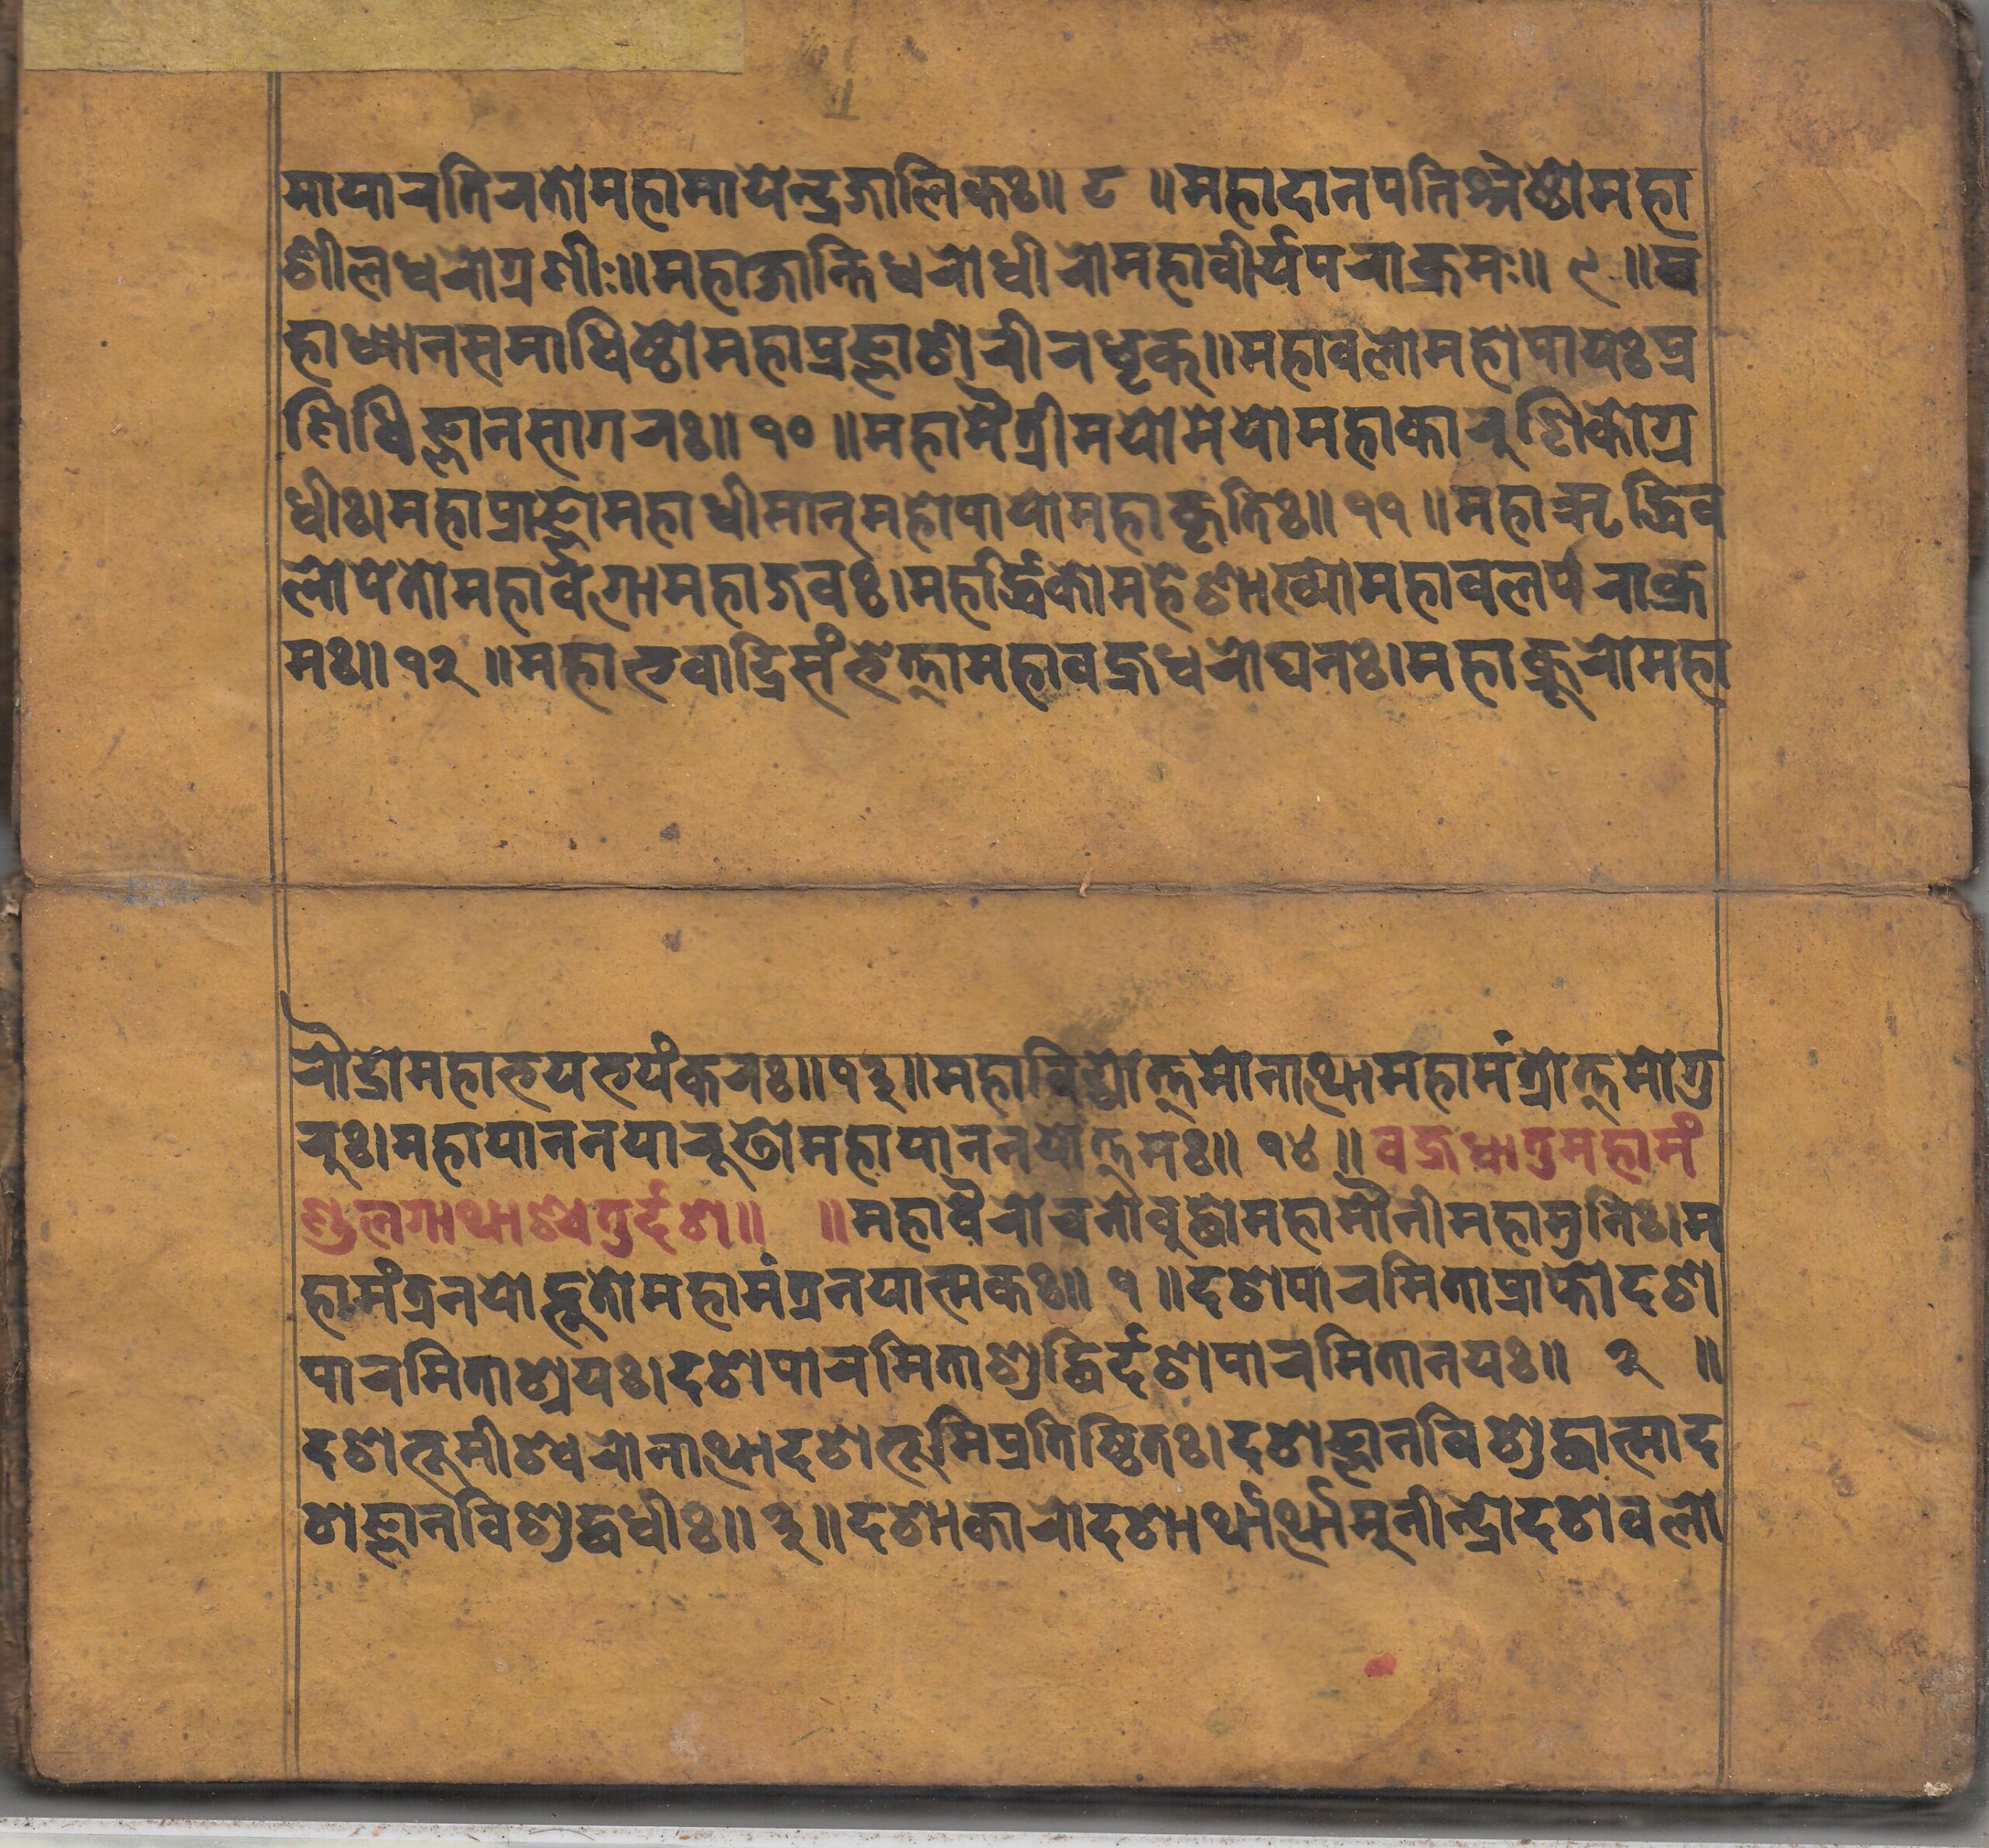 मायारतिरतोमहामायेन्द्रजालिकः॥ ८ ॥महादानपतिश्रेष्ठोमहा
शीलधरोग्रणीः॥महाक्षान्तिधरोधीरोमहावीर्यपराक्रमः॥ ९ ॥म
हाध्यानसमाधिष्ठोमहाप्रज्ञाशरीरधृक्॥महावलोमहोपायःप्र
णिधिज्ञानसागरः॥ १० ॥महामैत्रीमयोमेयोमहाकारुणिकोग्र
धीः।महाप्राज्ञोमहाधीमान्महोपायोमहाकृतिः॥ ११ ॥महाऋद्धिव
लोपेतोमहावेगोमहाजवः।महर्द्धिकोमहेशाख्योमहावलपराक्र
मः॥ १२ ॥महाभवाद्रिसंभेत्तामहावज्रधरोघनः।महाक्रूरोमहा
रौद्रोमहाभयभयंकरः॥१३॥महाविद्योत्तमोनाथोमहामंत्रोत्तमोगु
रुः।महायाननयारूढोमहायाननयोत्तमः॥ १४ ॥वज्रधातुमहामं
ण्डलगाथाश्चतुर्दश॥ ॥महावैरोचनोवुद्धोमहामौनीमहामुनिः।म
हामंत्रनयोद्भूतोमहामंत्रनयात्मकः॥ १ ॥दशपारमिताप्राप्तोदश
पारमिताश्रयः।दशपारमिताशुद्धिर्दशपारमितानयः॥ २ ॥
दशभूमीश्वरोनाथोदशभूमिप्रतिष्ठितः।दशज्ञानविशुद्धात्माद
शज्ञानविशुद्धधीः॥ ३॥दशाकारोदशार्थार्थोमुनीन्द्रोदशवलो